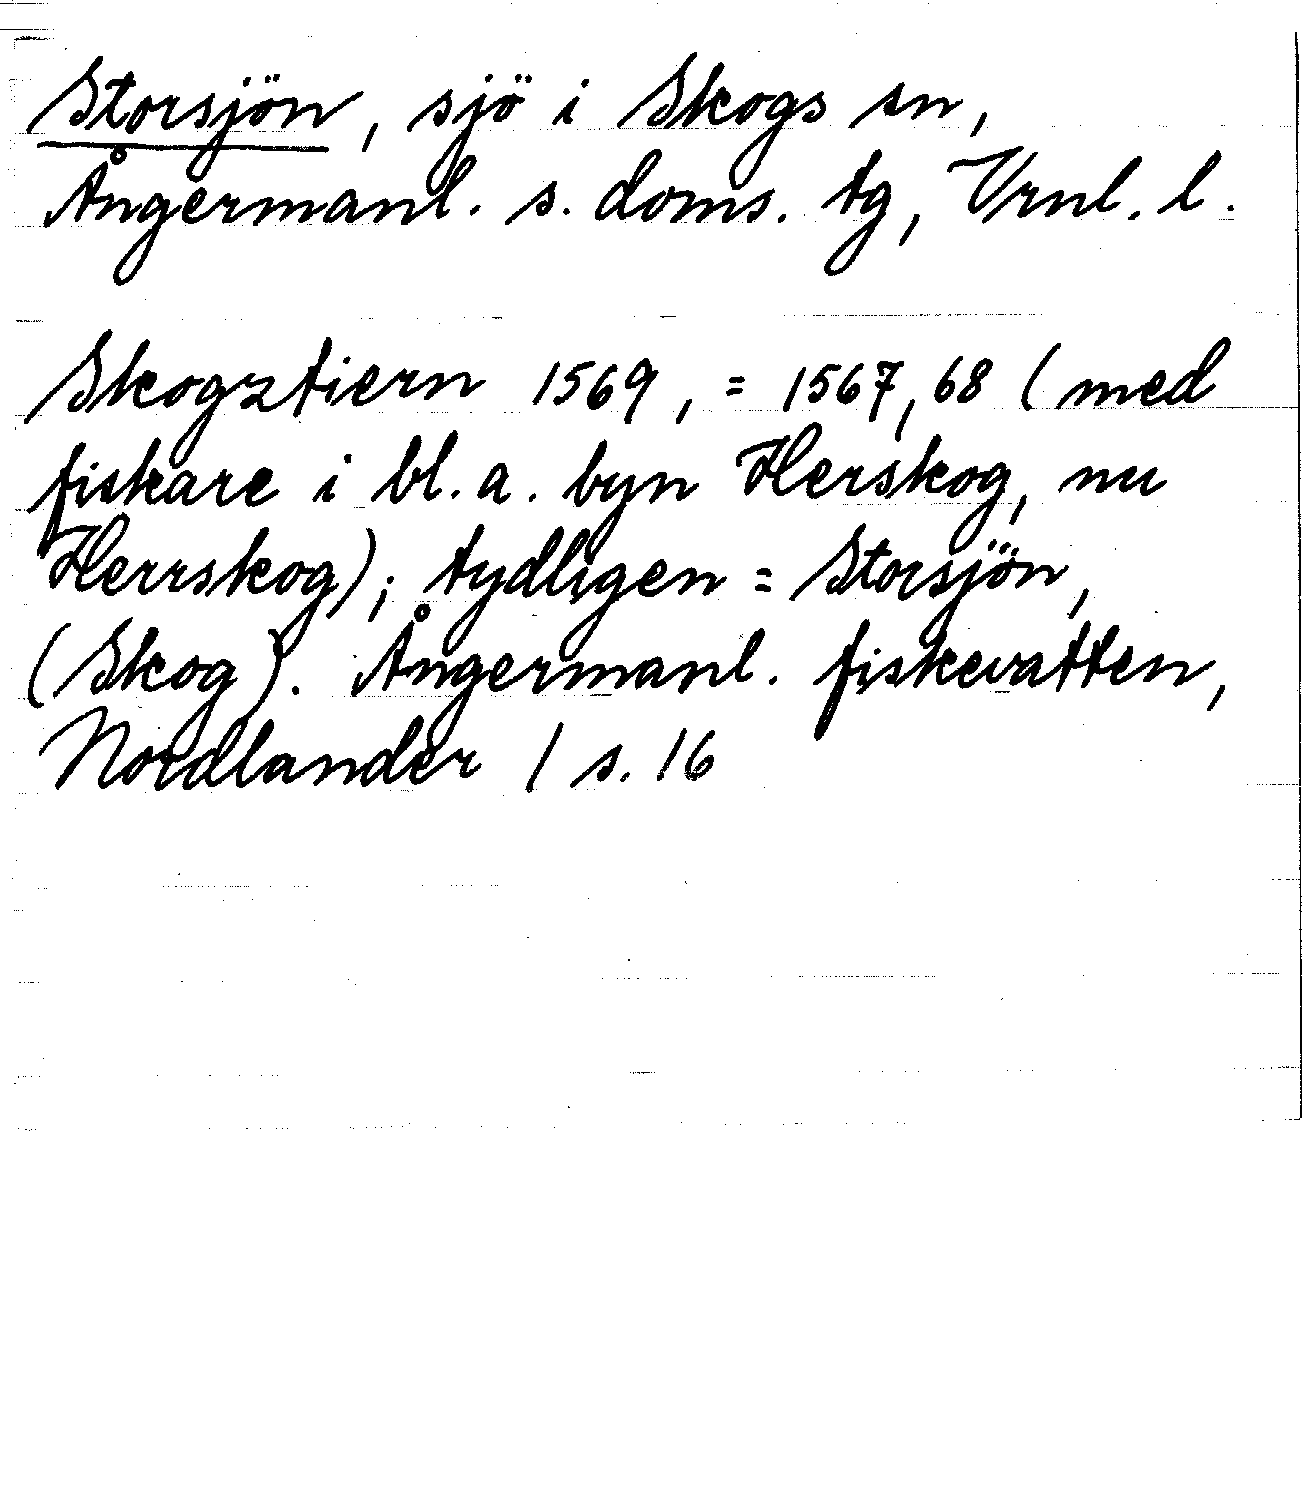 Storsjön, sjö i Skogs sn,
Ångermanl. s. doms. tg, Vrnl. l.
Skogztiern 1569, = 1567, 68 (med
fiskare i bl. a. byn Herskog, nu
Herrskog); tydligen = Storsjön,
(Skog). Ångermanl. fiskevatten,
Nordlander / s. 16